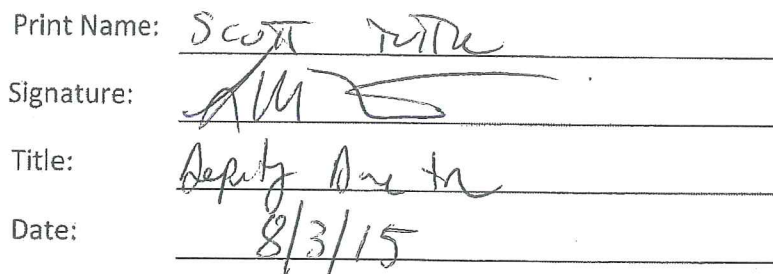 Print Name: Scott
Signature:
Title: Deputy Director
Date: 8/3/15